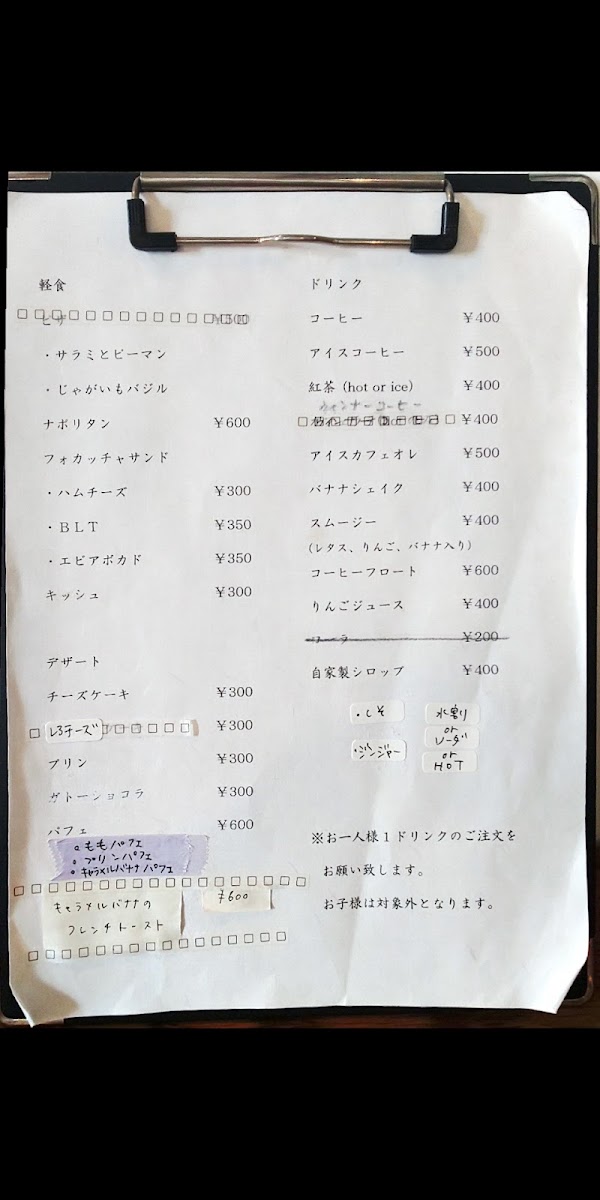 軽食
ピザ ¥500
・サラミとピーマン
・じゃがいもバジル
ナポリタン ¥600
フォカッチャサンド
・ハムチーズ ¥300
・BLT ¥350
・エビアボカド ¥350
キッシュ ¥300
デザート
チーズケーキ ¥300
レアチーズ ¥300
プリン ¥300
ガトーショコラ ¥300
パフェ ¥600
。ももパフェ
。プリンパフェ
・キャラメルバナナパフェ
キャラメルバナナの ¥600
フレンチトースト
ドリンク
コーヒー ¥400
アイスコーヒー ¥500
紅茶 (hot or ice) ¥400
ウィンナーコーヒー
¥400
アイスカフェオレ ¥500
バナナシェイク ¥400
スムージー ¥400
(レタス、りんご、バナナ入り)
コーヒーフロート ¥600
りんごジュース ¥400
コーラ ¥200
自家製シロップ ¥400
・しそ
・ジンジャー
水割り
or
ソーダ
or
HOT
※お一人様1ドリンクのご注文を
お願い致します。
お子様は対象外となります。